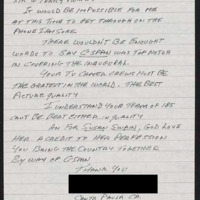 IT WOULD BE IMPOSSIBLE FOR ME
AT THIS TIME TO GET THROUGH ON THE
PHONE
THERE WOULDN'T BE ENOUGHT
WORDS TO SAY C-SPAN WAS
IN COVERING THE INAUGURAL
YOUR TV CAMERA CREWS MUST BE
THE GREATEST IN THE WORLD. THE BEST
PICTURE QUALITY
I UNDERSTAND YOUR TEAM OF 185
CAN'T BE BEAT EITHER, IN QUALITY
AN FOR SUSAN SWAIN, GOD LOVE
HER A CREDIT TO HER PROFESSION
YOU BRING THE COUNTRY TOGETHER
BY WAY OF CSPAN
THANK YOU!
SANTA PAULA CA.